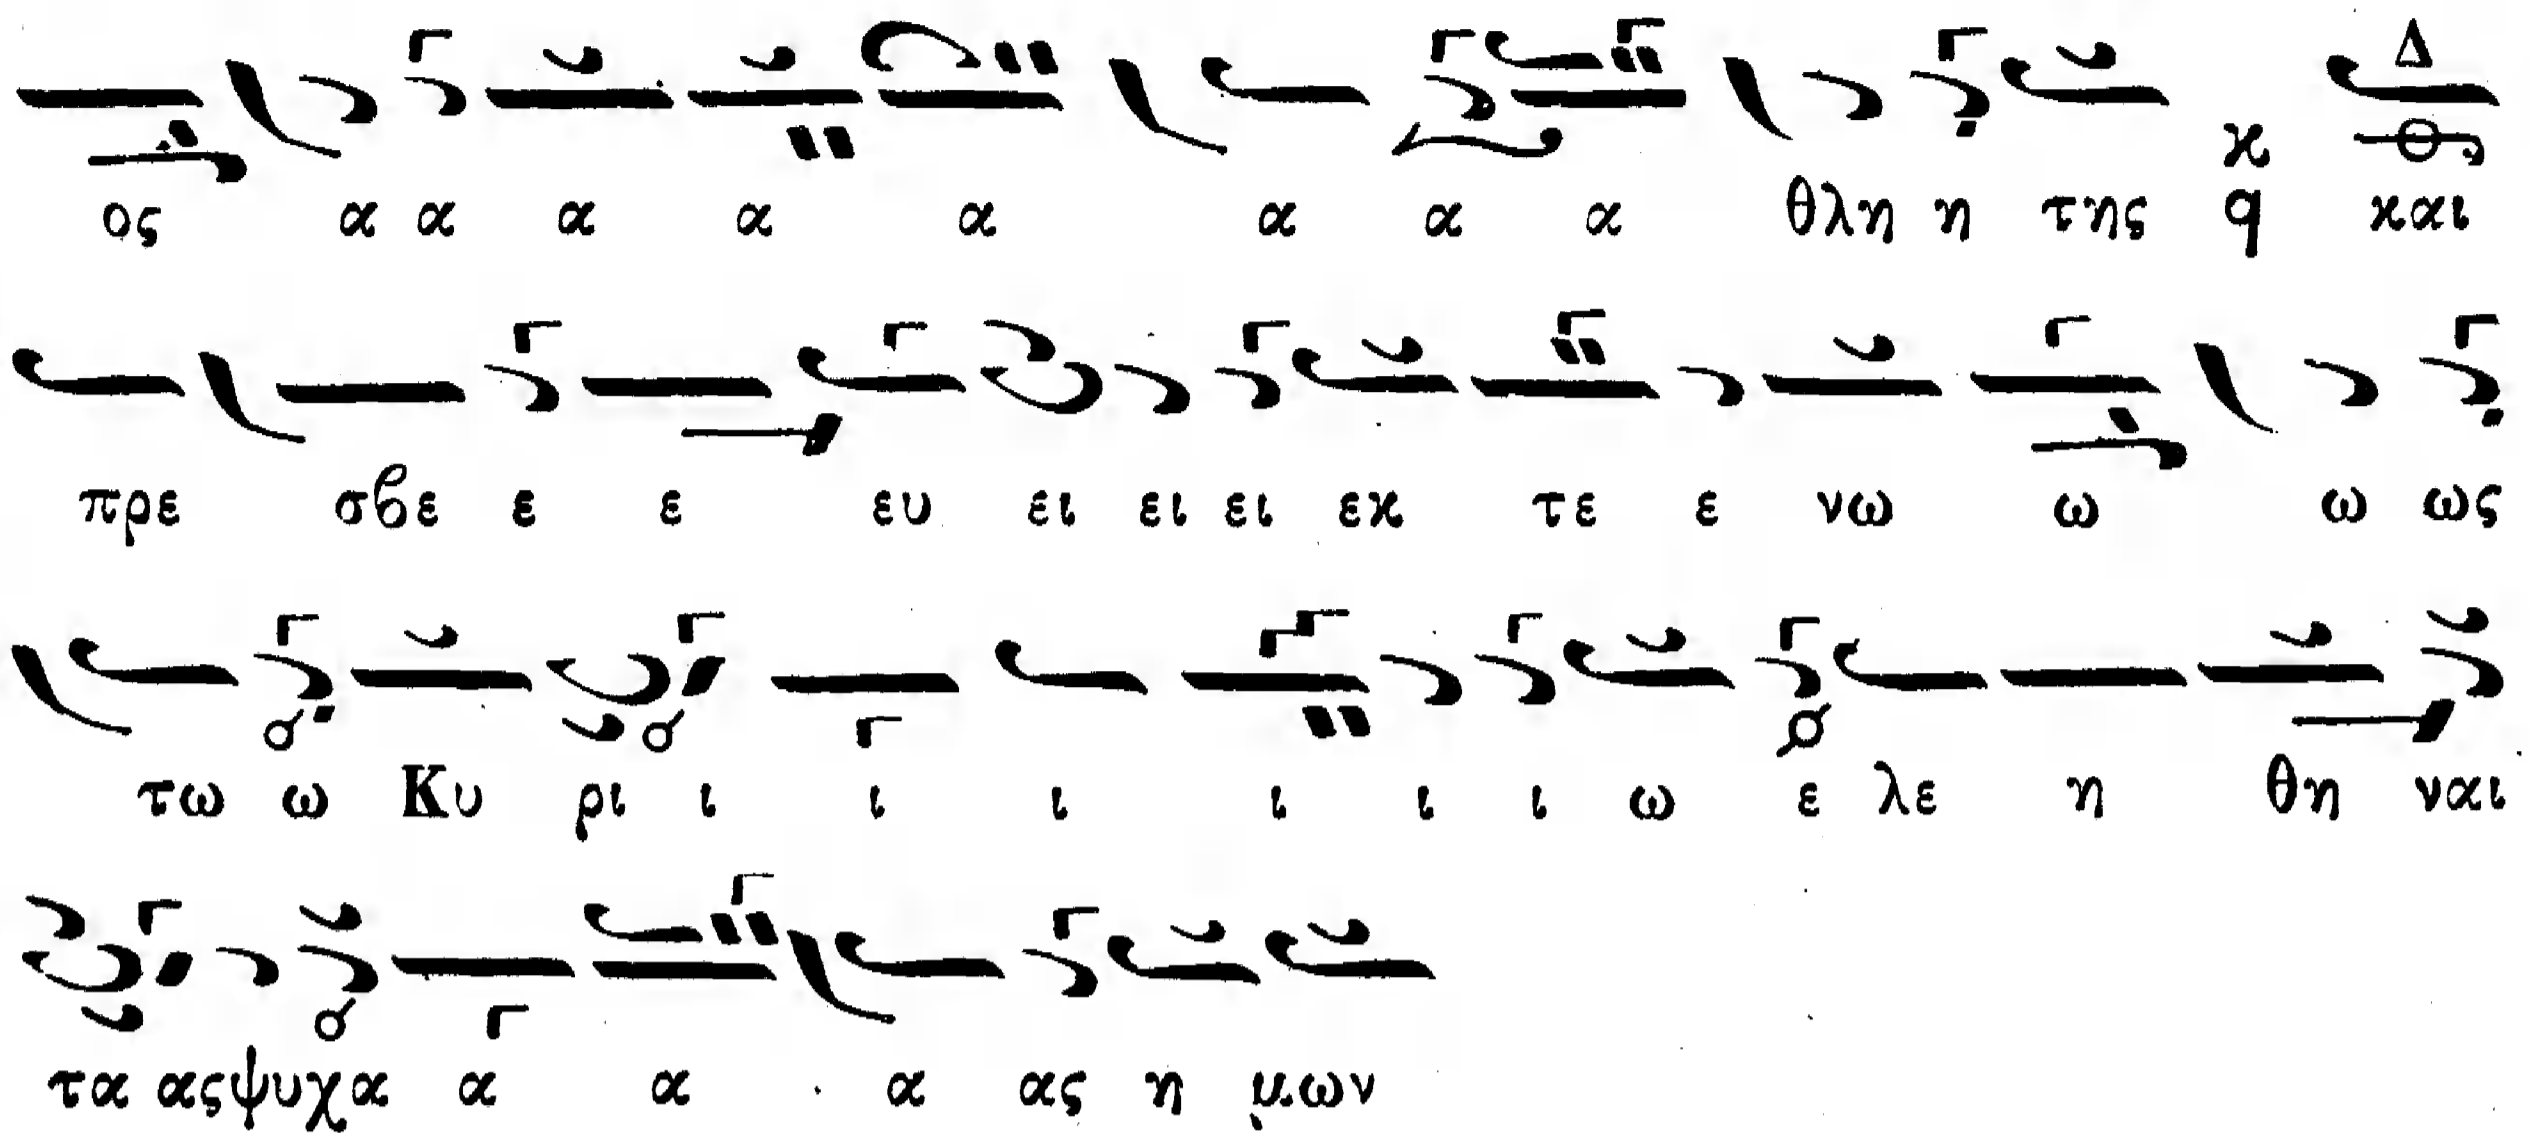 ος α α α α α α α α θλη η της ϗ q και
πρε σβε ε ε ευ ει ει ει εκ τε ε νω ω ω ως
τω ω Κυ ρι ι ι ι ι ι ι ω ε λε η θη ναι
τα ας ψυχα α α α ας η μων